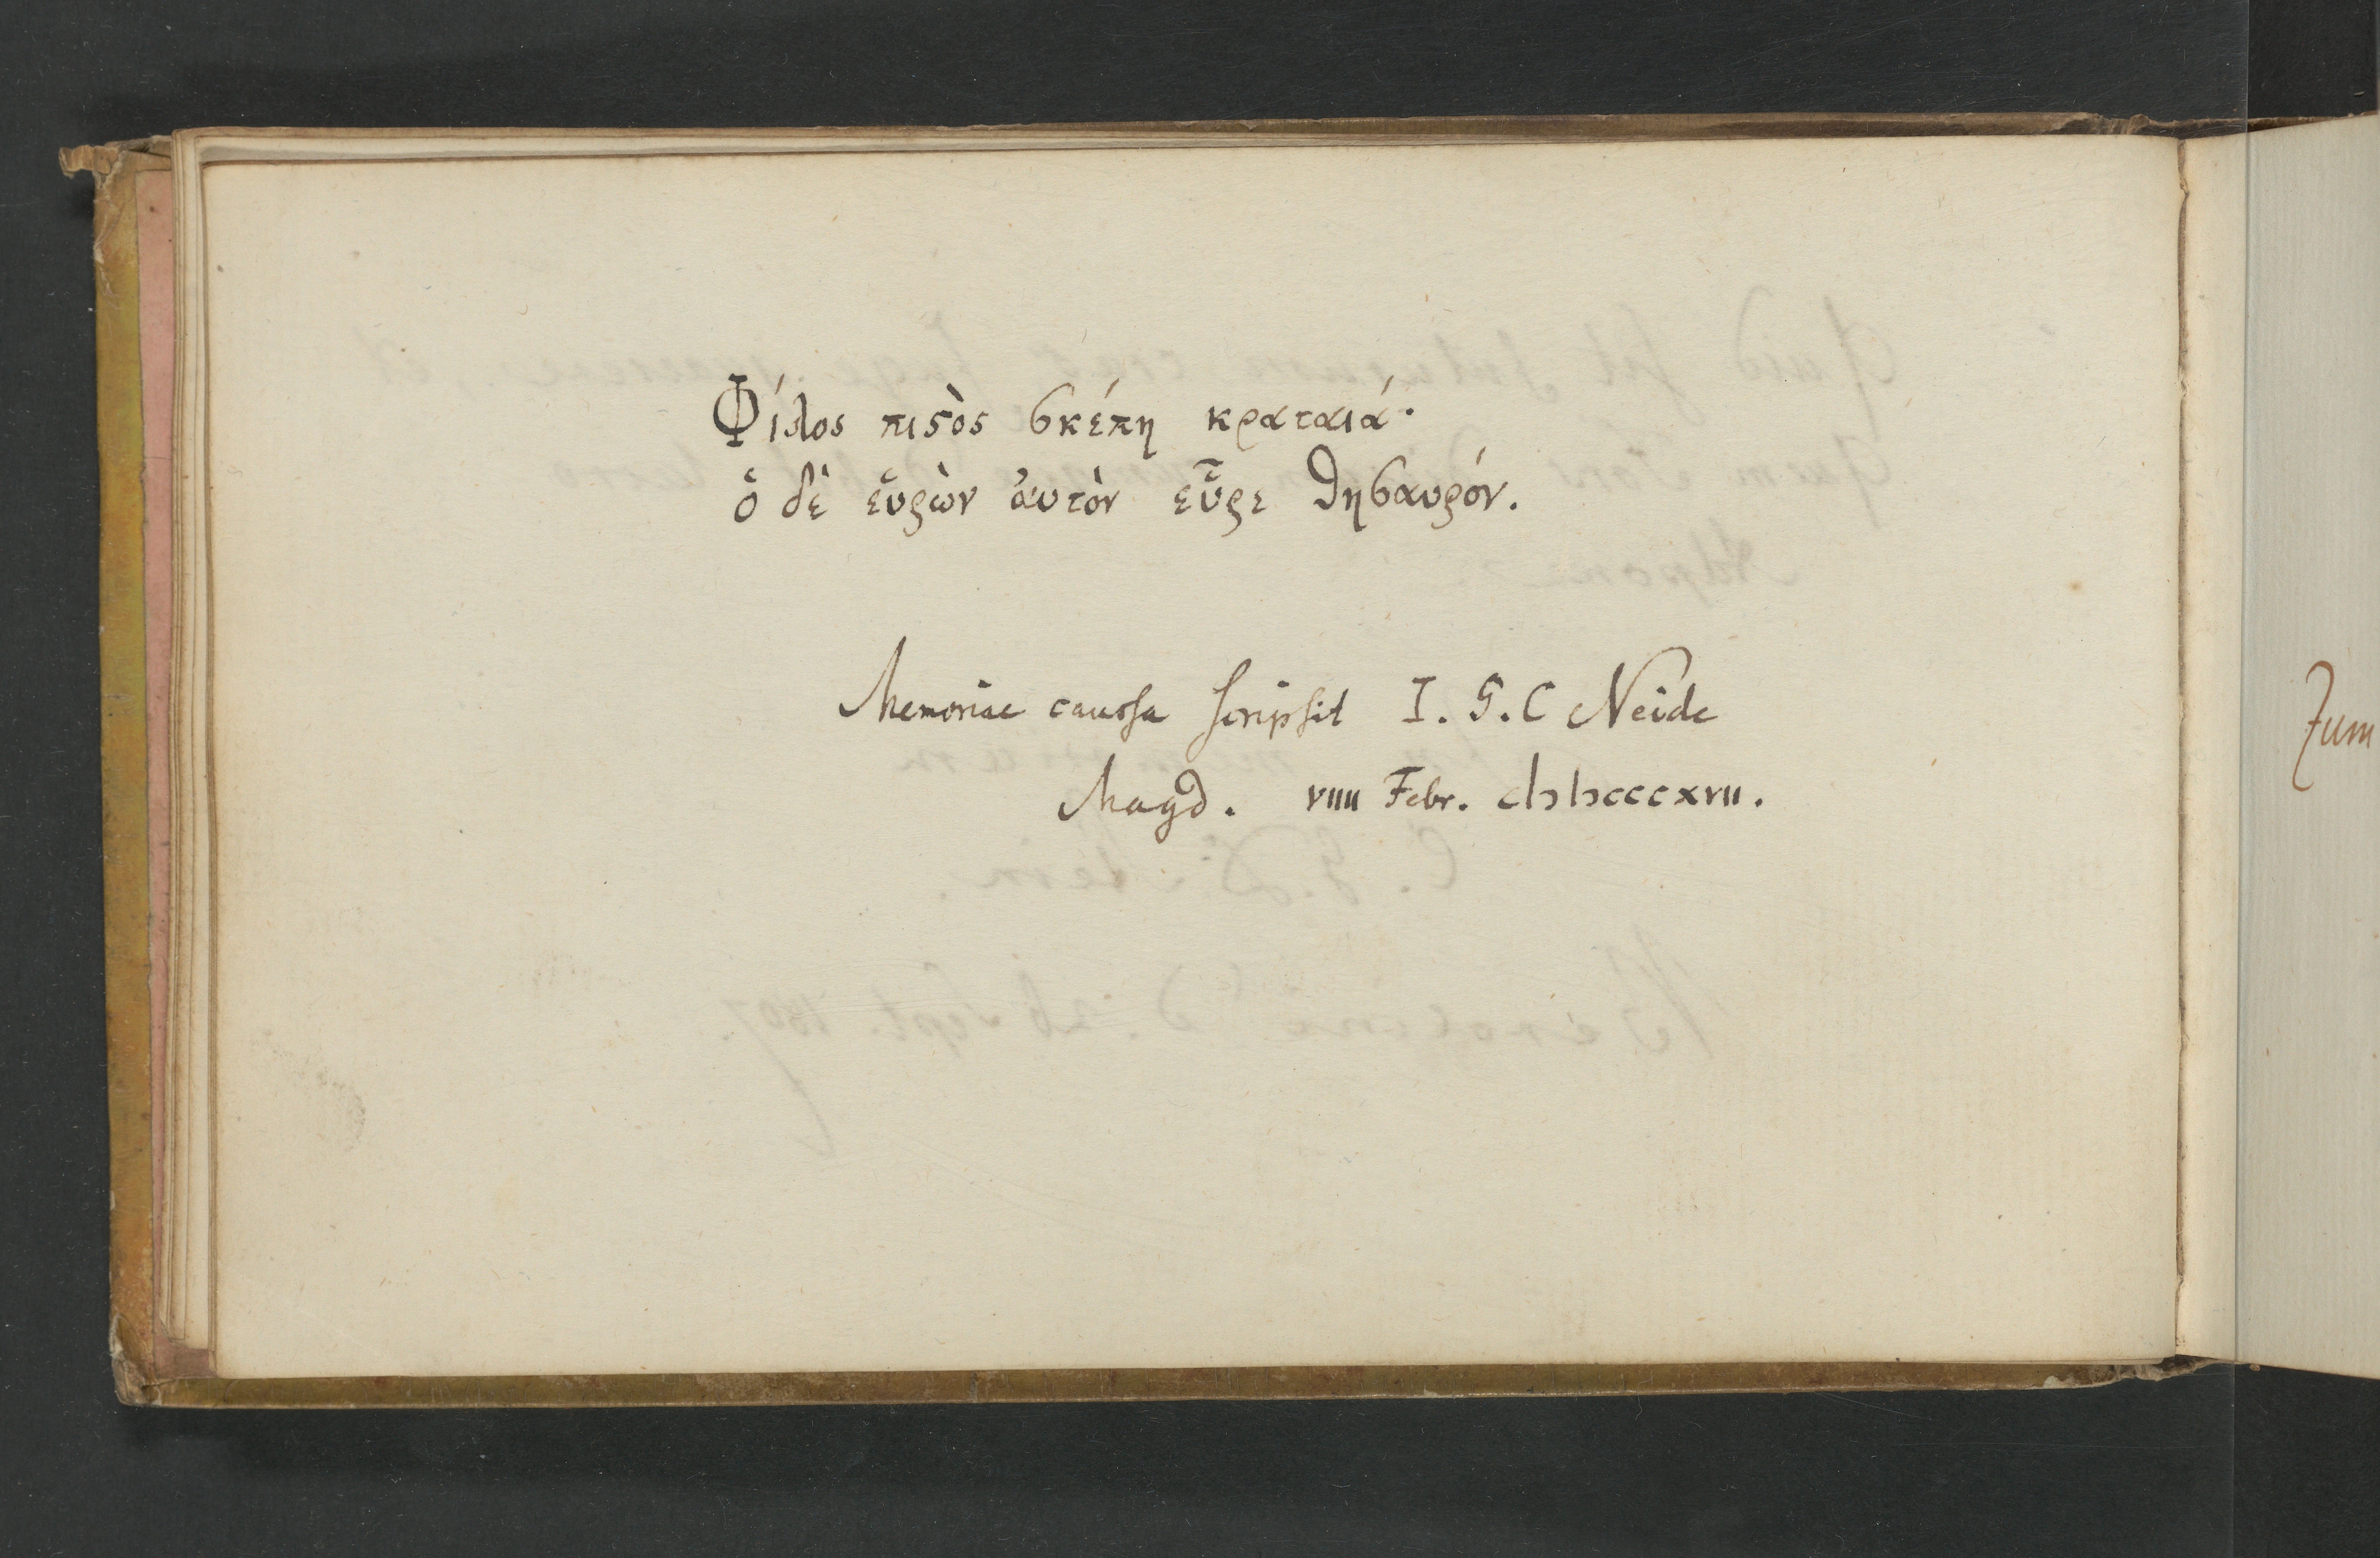 Φίλος πιϛὸς σκέπη κραταιά·
ὁ δὲ εὑρὼν ἀυτὸν εὗρε θησαυρόν.
Memoriae caussa scripsit I. G. C Neide
Magd. VIIII Febr. cIↄIↄcccxvII.
Zum